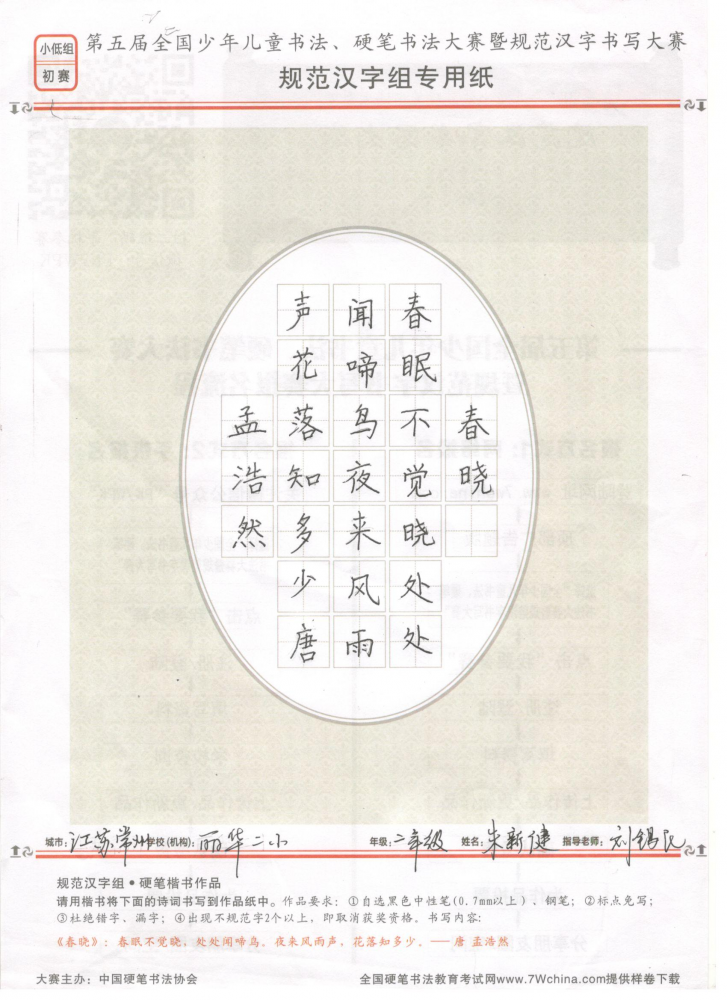 小低组
初赛
第五届全国少年儿童书法、硬笔书法大赛暨规范汉字书写大赛
规范汉字组专用纸
春晓
春眠不觉晓处处
闻啼鸟夜来风雨
声花落知多少唐
孟浩然
城市：江苏常州 学校(机构)：丽华二小 年级：二年级 姓名：朱新健 指导老师：刘锡民
规范汉字组•硬笔楷书作品
请用楷书将下面的诗词书写到作品纸中。作品要求：①自选黑色中性笔(0.7mm以上)、钢笔；②标点免写；
③杜绝错字、漏字；④出现不规范字2个以上，即取消获奖资格。书写内容：
《春晓》：春眠不觉晓，处处闻啼鸟。夜来风雨声，花落知多少。——唐 孟浩然
大赛主办：中国硬笔书法协会 全国硬笔书法教育考试网www.7Wchina.com提供样卷下载